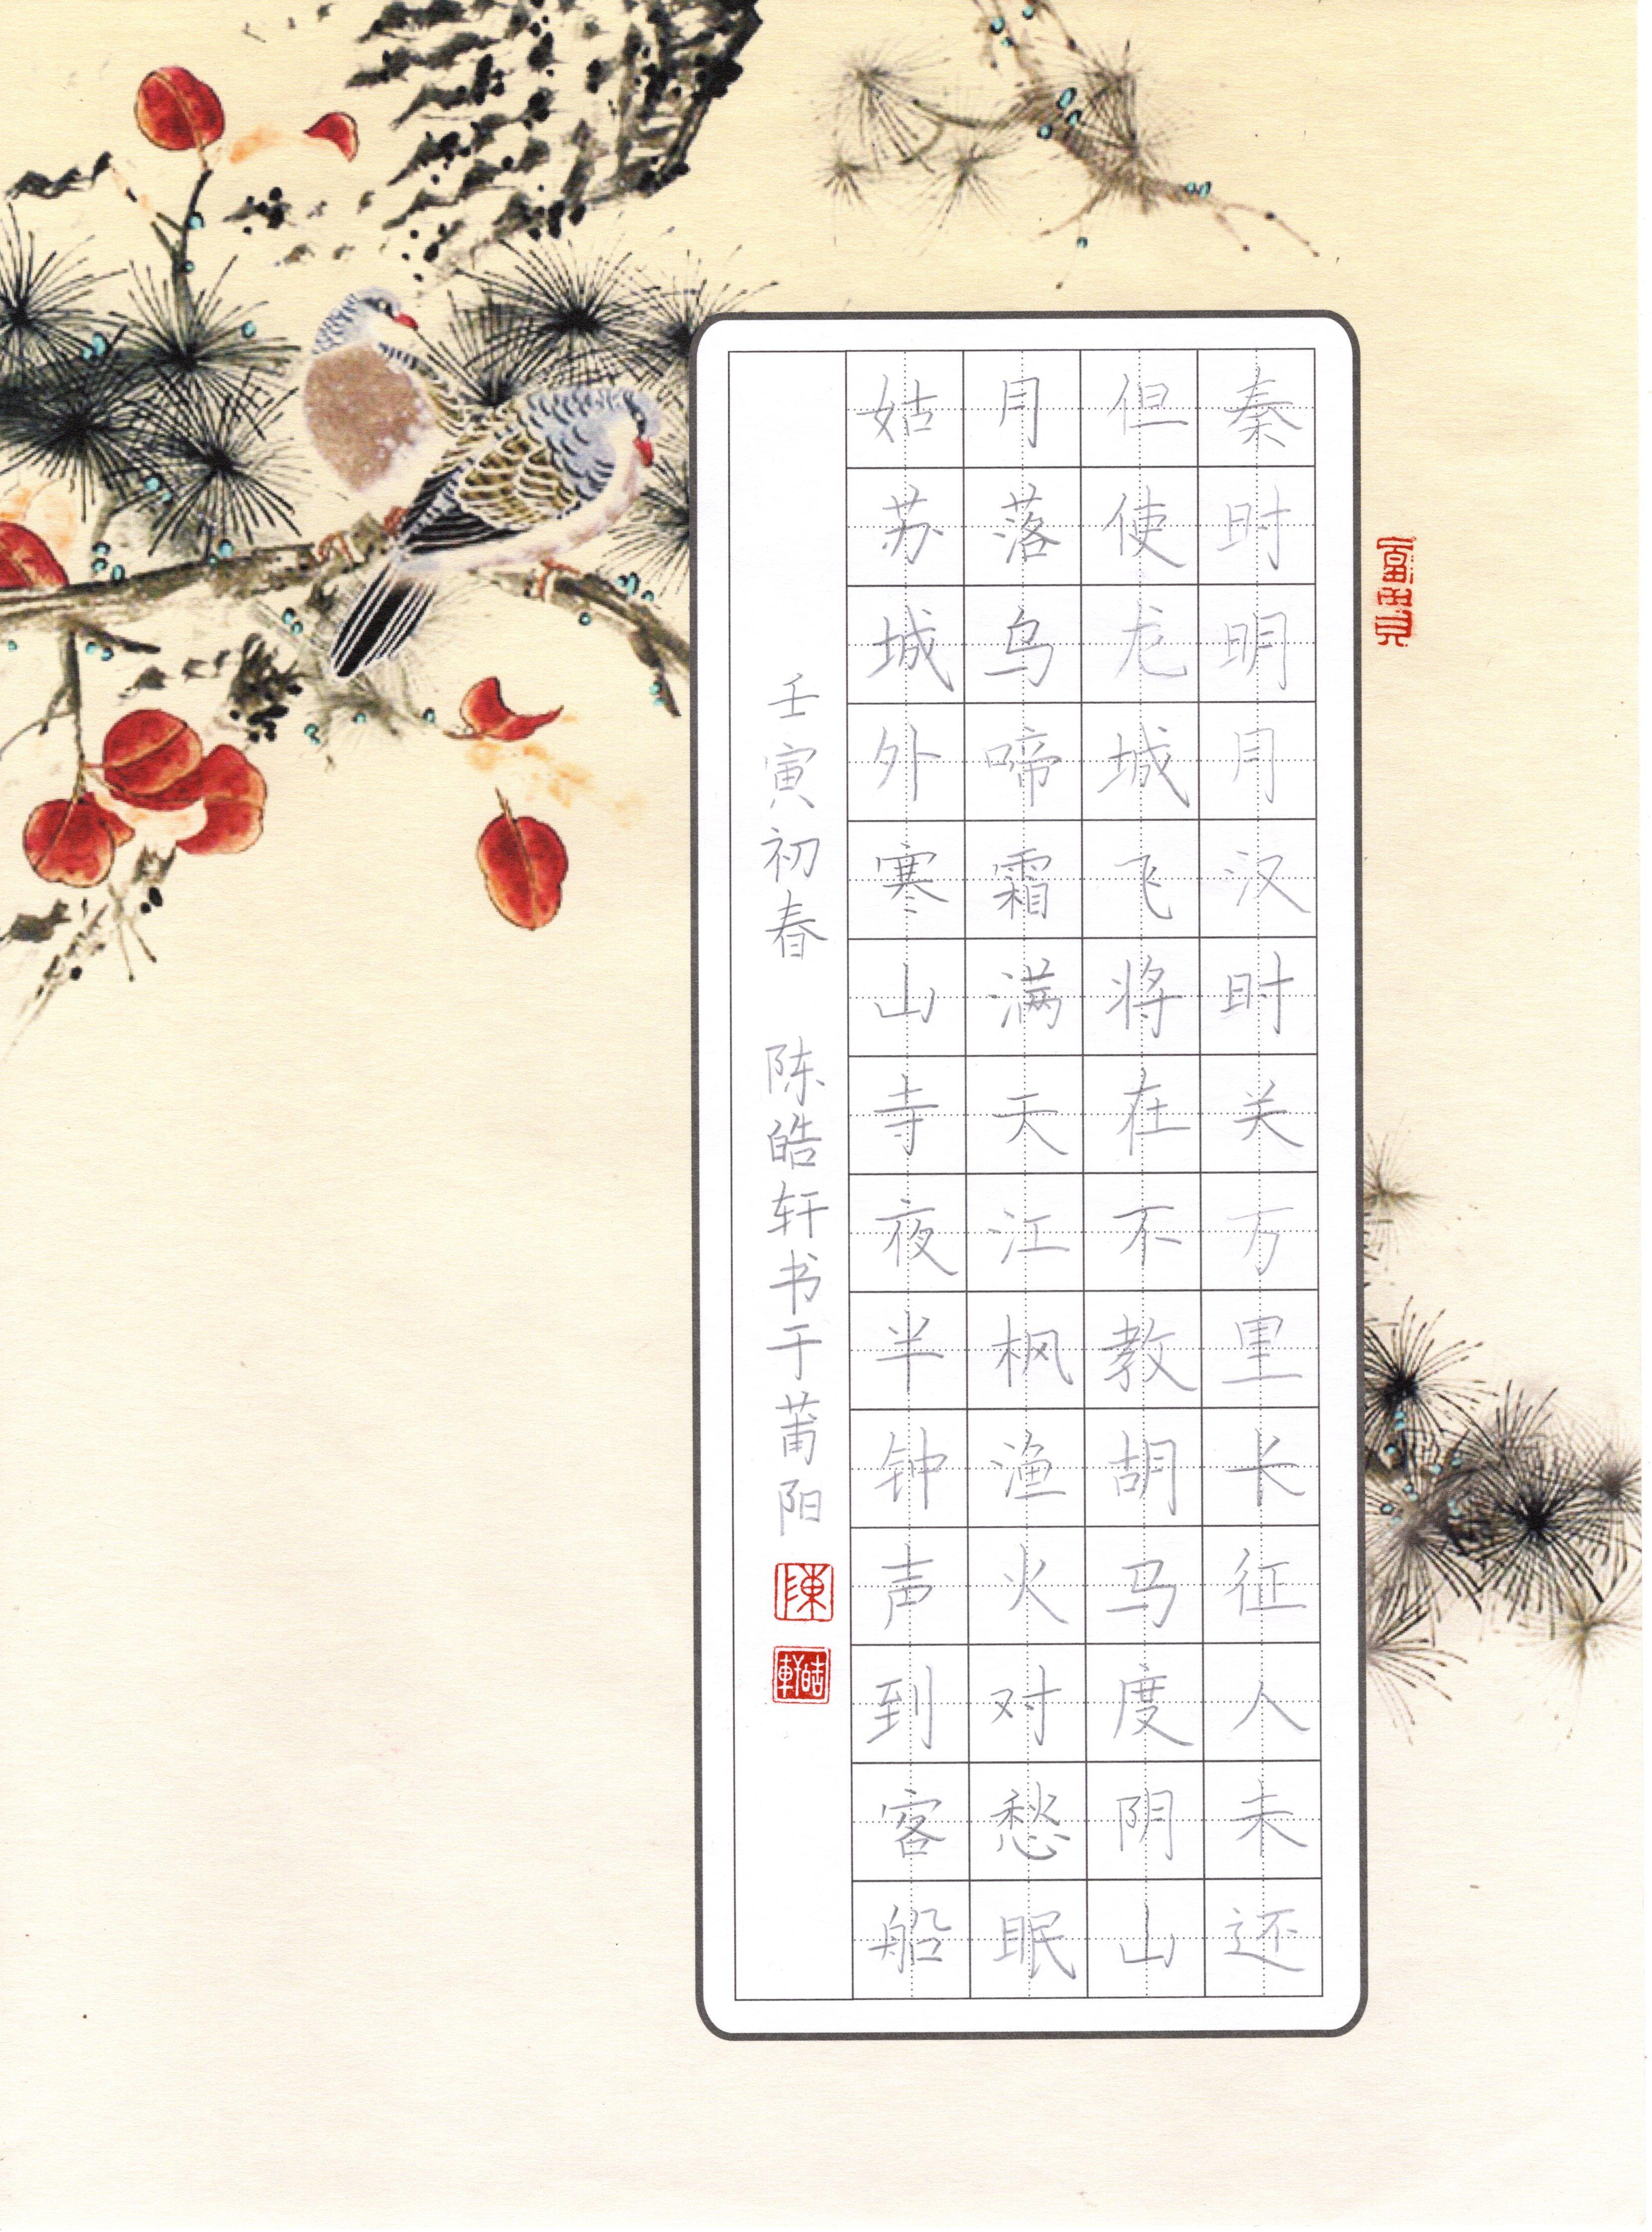 秦时明月汉时关万里长征人未还
但使龙城飞将在不教胡马度阴山
月落乌啼霜满天江枫渔火对愁眠
姑苏城外寒山寺夜半钟声到客船
壬寅初春 陈皓轩书于莆阳
陳
皓軒